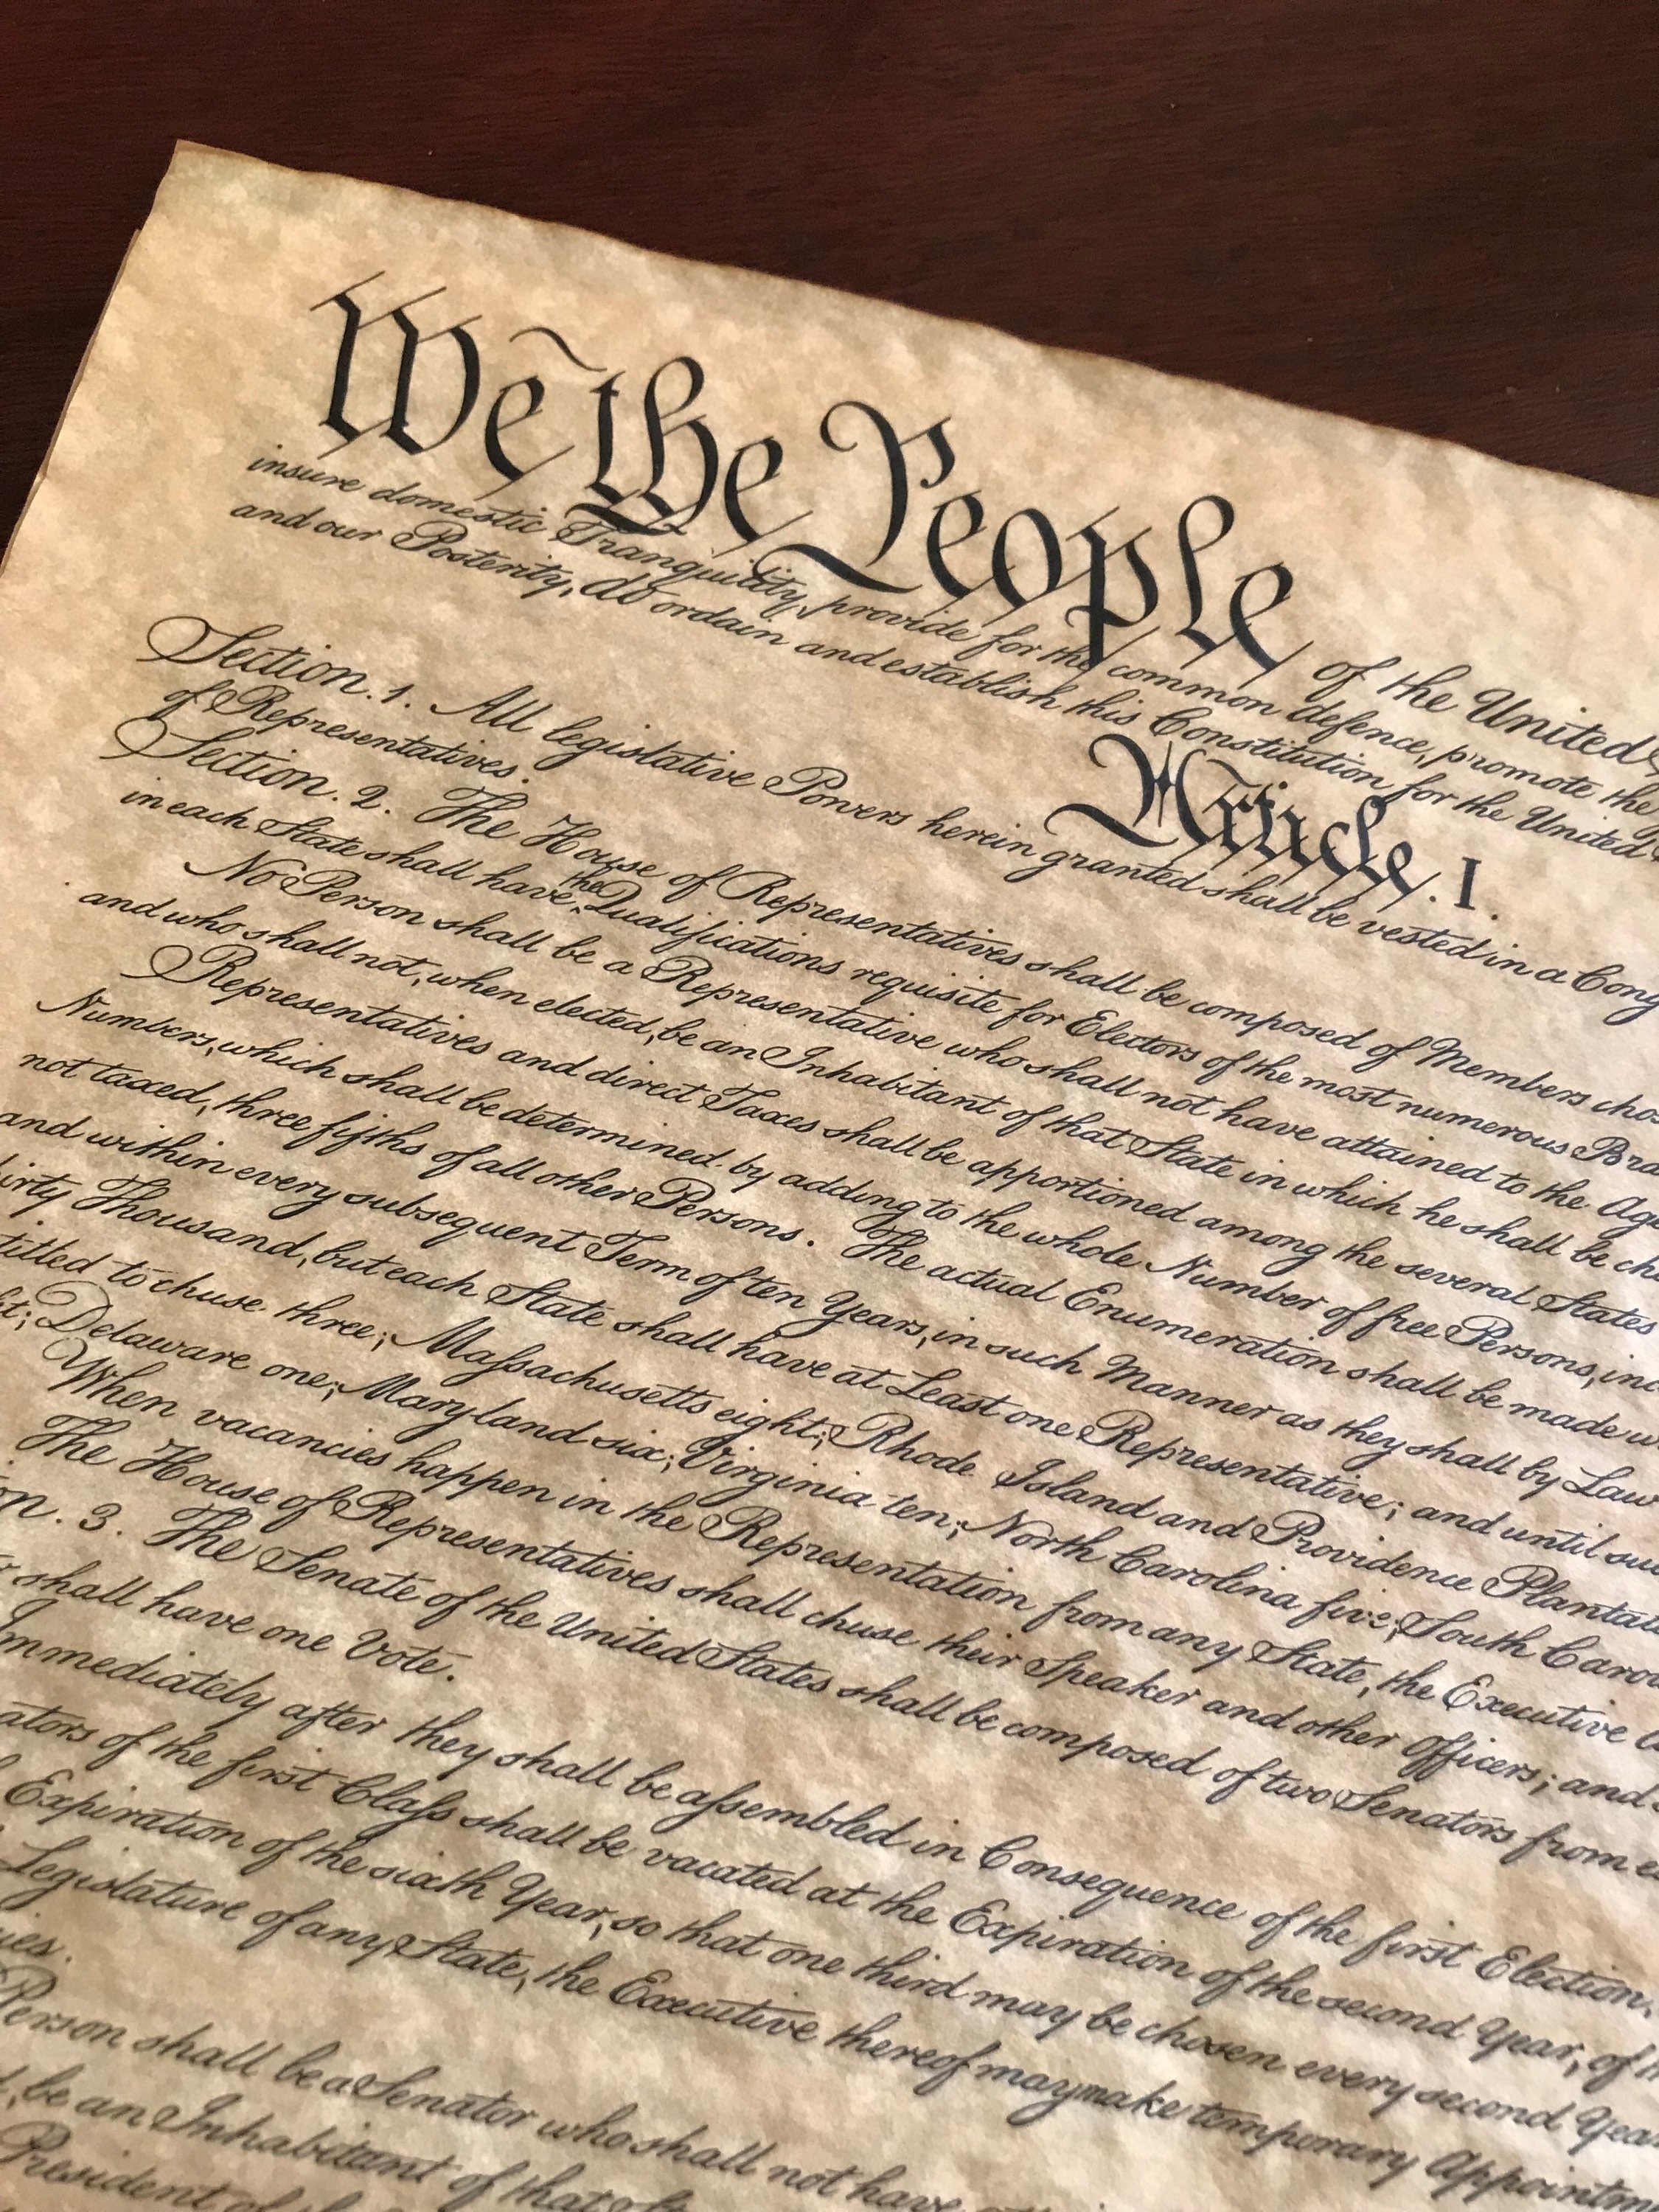 We the People of the United
insure domestic Tranquility, provide for the common defence, promote the
and our Posterity, do ordain and establish this Constitution for the United
Article. I.
Section. 1. All legislative Powers herein granted shall be vested in a Cong
of Representatives.
Section. 2. The House of Representatives shall be composed of Members chos
in each State shall have the Qualifications requisite for Electors of the most numerous Bra
No Person shall be a Representative who shall not have attained to the Age
and who shall not, when elected, be an Inhabitant of that State in which he shall be cho
Representatives and direct Taxes shall be apportioned among the several States
Numbers, which shall be determined by adding to the whole Number of free Persons, inc
not taxed, three fifths of all other Persons. The actual Enumeration shall be made w
and within every subsequent Term of ten Years, in such Manner as they shall by Law
irty Thousand, but each State shall have at Least one Representative; and until suc
titled to chuse three; Massachusetts eight; Rhode Island and Providence Plantat
ht; Delaware one; Maryland six; Virginia ten; North Carolina five; South Caro
When vacancies happen in the Representation from any State, the Executive
The House of Representatives shall chuse their Speaker and other Officers; and
on. 3. The Senate of the United States shall be composed of two Senators from e
r shall have one Vote.
Immediately after they shall be assembled in Consequence of the first Election,
ators of the first Class shall be vacated at the Expiration of the second Year, of th
Expiration of the sixth Year, so that one third may be chosen every second Year
Legislature of any State, the Executive thereof may make temporary Appointm
ies.
Person shall be a Senator who shall not have
, be an Inhabitant of that
President of